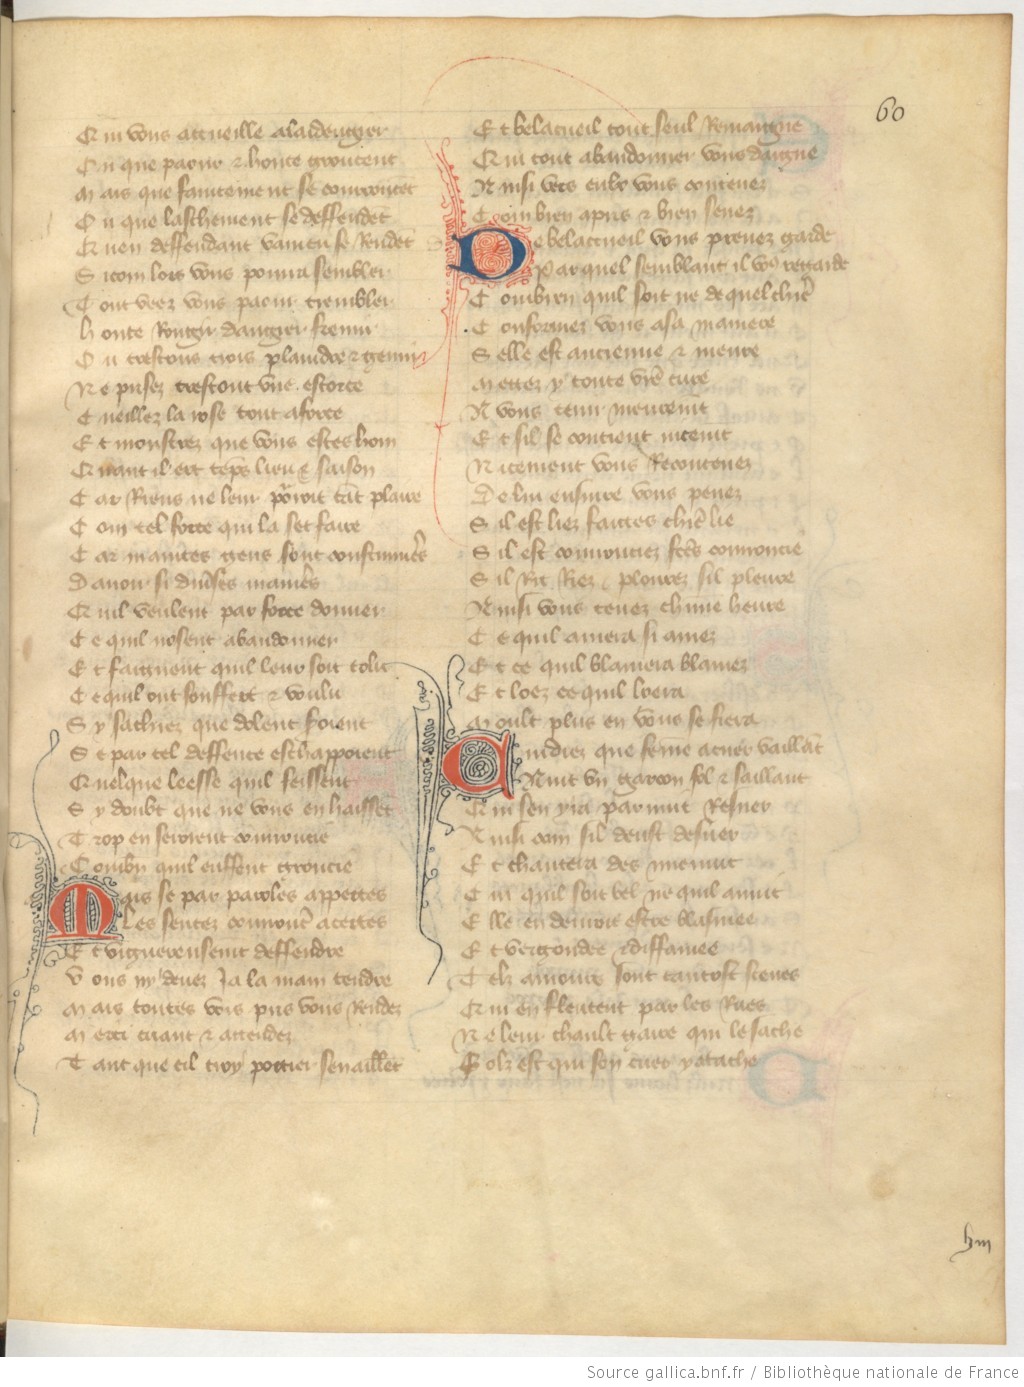 60
Qui vous acueille a laidengier
Ou que paour & honte groucent
Mais que faintement se couroucet
Ou que laschement se deffendēt
Quen deffendant vaincu se Rendēt
Si com lors vous pourra sembler
Tout veez vous paour trembler
honte Rougir dangier fremir
Ou trestous trois plaindre & gemir
Ne prisez trestout vne escorce
Cueillez la rose tout a force
Et monstrez que vous estes hom
Quant il ert tēps lieu & saison
Car Riens ne leur porroit tāt plaire
Com tel force qui la set faire
Car maintes gens sont coustumiers
Dauoir si diuses manieres
Quil veulent par force donner
Ce quil nosent abandonner
Et faignent quil leur soit tolu
Ce quil ont souffert & voulu
Sy sachiez que dolent seroient
Se par tel deffence eschappoient
Quelque leesse quil feissent
Sy doubt que ne vous en haissēt
Trop en seroient courroucie
Combn quil eussent groucie
Mais se par paroles appertes
Les sentez courroucier acertes
Et viguereusemt deffendre
Vous ny deuez Ja la main tendre
Mais toutes vois pris vous Rendez
Merci criant & attendez
Tant que cil troy portier sen aillēt
Et belacueil tout seul Remaigne
Qui tout abandonner vous daigne
Ainsi vers eulx vous contenez
Com bien apris & bien senez
De belacueil vous prenez garde
Par quel semblant il vous regarde
Combien quil soit ne de quel chiere
Conformez vous a sa maniere
Selle est ancienne & meure
Mettez y toute vre cure
A vous tenir meuremēt
Et sil se contient nicemt
Nicement vous Recontenez
De lui ensuire vous penez
Sil est liez faictes chiere lie
Sil est courrouciez fctēs courroucie
Sil Rit Riez plourez sil pleure
Ainsi vous tenez chūne heure
Ce quil amera si amez
Et ce quil blamera blamez
Et loez ce quil loera
Moult plus en vous se fiera
Cuidiez que feme a cuer vaillāt
Aint vn garcon fol & saillant
Qui sen yra par nuit Resuer
Ainsi com sil deust desuer
Et chantera des mienuit
Cui quil soit bel ne quil anuit
Elle en deuroit estre blasmee
Et vergondee & diffamee
Telz amours sont tantost sceues
Quil en fleutent par les Rues
Ne leur chault gaire qui le sache
Folz est qui son cuer y atache